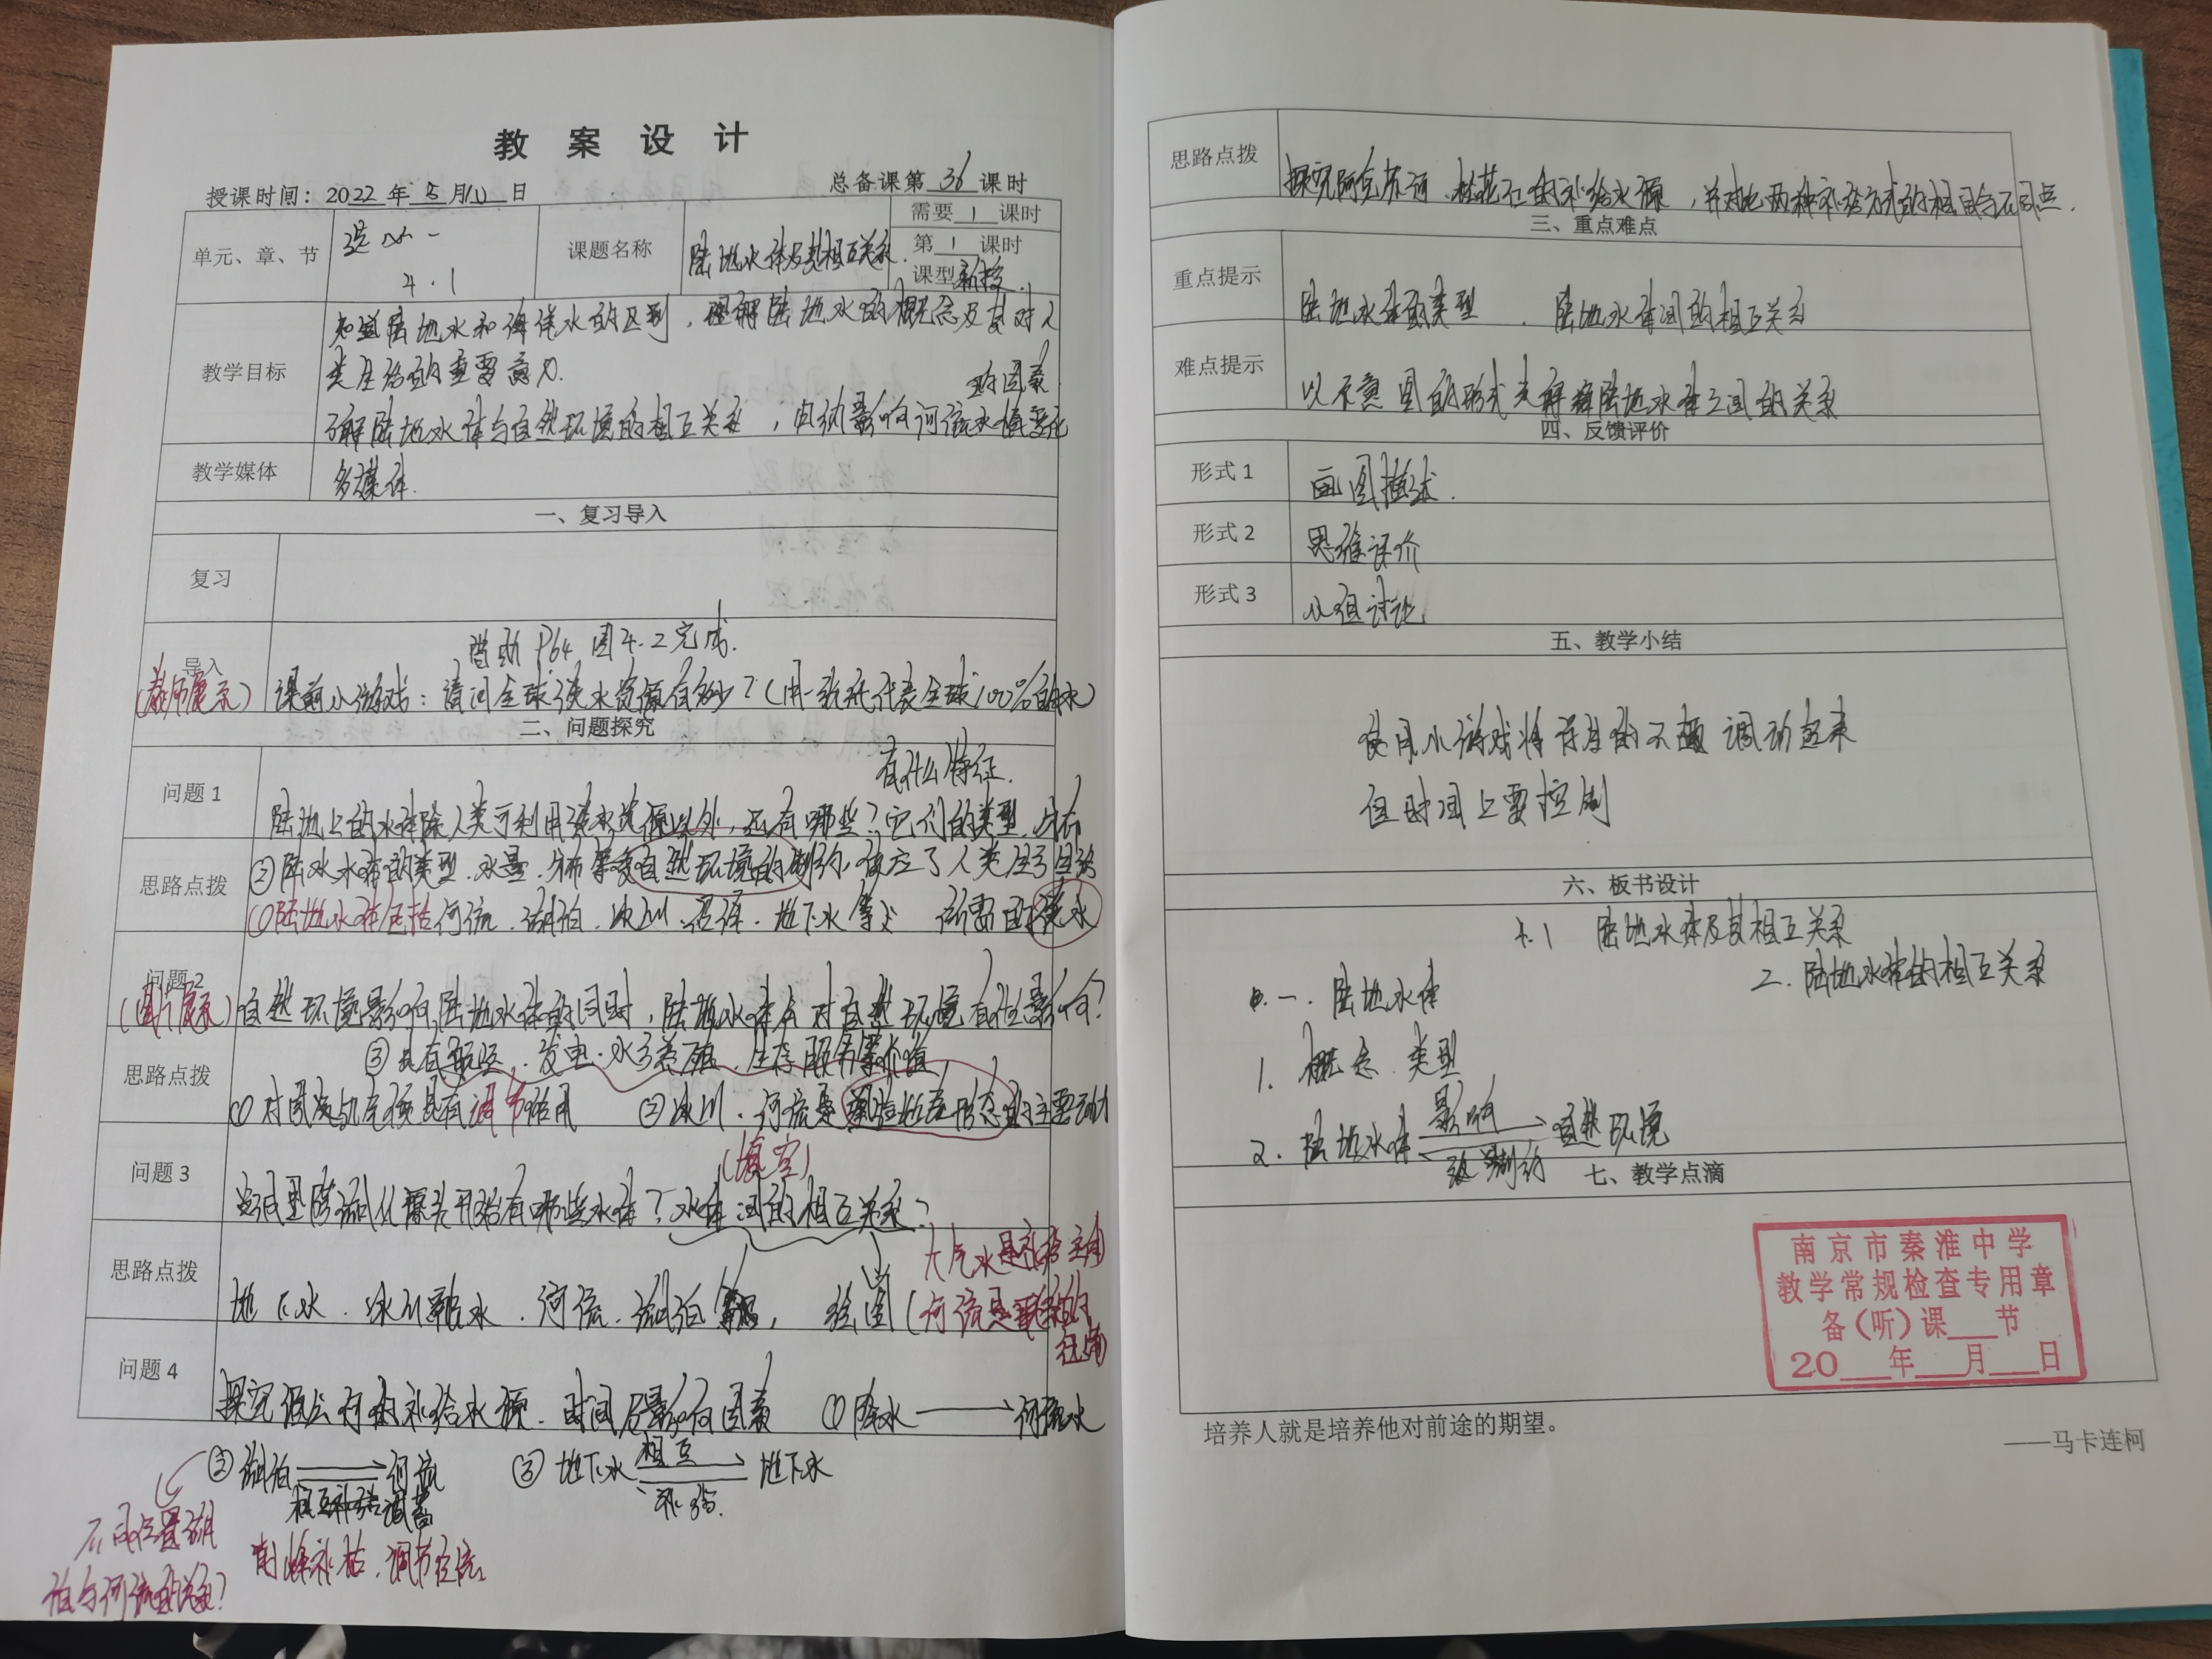 教 案 设 计
授课时间：2022 年 5 月 10 日
总备课第 36 课时
单元、章、节
选必一
4.1
课题名称
陆地水体及其相互关系
需要 1 课时
第 1 课时
课型 新授
教学目标
知道陆地水和海洋水的区别，理解陆地水的概念及其对人
类生活的重要意义.
了解陆地水体与自然环境的相互关系，归纳影响河流水情变化
的因素
教学媒体
多媒体.
一、复习导入
复习
导入
(教师展示)
借助 P64 图4.2完成.
课前小游戏：请问全球淡水资源有多少？(用一张纸代表全球100%的水)
二、问题探究
问题 1
有什么特征.
陆地上的水体除人类可利用淡水资源以外，还有哪些？它们的类型、分布
思路点拨
②陆水水体的类型、水量、分布等受自然环境的制约，供应了人类生产生活
①陆地水体包括河流、湖泊、冰川、沼泽、地下水等 所需的淡水
问题 2
(图片展示)
自然环境影响陆地水体的同时，陆地水体会对自然环境有什么影响？
思路点拨
③具有航运、发电、水产养殖、生态服务等价值
①对周边气候具有调节作用 ②冰川、河流是塑造地表形态的主要动力
问题 3
(填空)
从源头开始有哪些水体？水体间的相互关系？
思路点拨
地下水、冰川融水、河流、湖泊等， 绘图
大气水是补给
河流是
问题 4
探究 河的补给水源、时间及影响因素 ①降水 → 河流水
②湖泊 河流
相互补给 调蓄
③地下水 相互 地下水
补给.
不同位置湖
泊与河流的关系？
补枯、调节径流
思路点拨
探究阿克苏河、 的补给水源，并对比两种补给方式的相同与不同点.
三、重点难点
重点提示
陆地水体的类型 、陆地水体间的相互关系
难点提示
以示意图的形式来解释陆地水体之间的关系
四、反馈评价
形式 1
画图描述.
形式 2
思维评价
形式 3
小组讨论
五、教学小结
使用小游戏将学生的 调动起来
但时间上要控制
六、板书设计
4.1 陆地水体及其相互关系
一. 陆地水体
二. 陆地水体的相互关系
1. 概念、类型
2. 陆地水体 影响 自然环境
制约
七、教学点滴
南京市秦淮中学
教学常规检查专用章
备(听)课___节
20___年___月___日
培养人就是培养他对前途的期望。
——马卡连柯